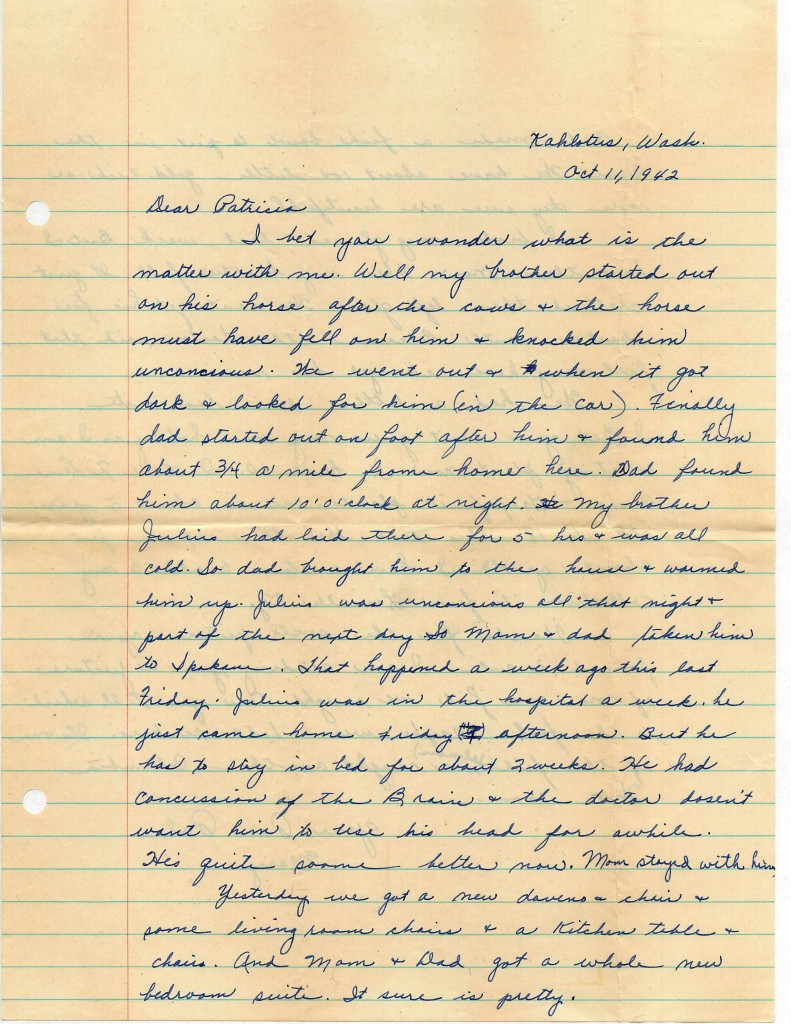 Kahlotus, Wash.
Oct 11, 1942
Dear Patricia
I bet you wonder what is the
matter with me. Well my brother started out
on his horse after the cows & the horse
must have fell on him & knocked him
unconcious. We went out & when it got
dark & looked for him (in the car). Finally
dad started out on foot after him & found him
about 3/4 a mile frome home here. Dad found
him about 10'O'clock at night. My brother
Julius had laid there for 5 hrs & was all
cold. So dad brought him to the house & warmed
him up. Julius was unconsious all that night &
part of the next day So Mom & dad taken him
to Spokane. That happened a week ago this last
Friday. Julius was in the hospital a week. he
just came home Friday afternoon. But he
has to stay in bed for about 2 weeks. He had
Concussion of the Brain & the doctor dosen't
want him to use his head for awhile.
He's quite some better now. Mom stayed with him
Yesterday we got a new daveno & chair &
some living room chairs & a Kitchen table &
chairs. And Mom & Dad got a whole new
bedroom suite. It sure is pretty.